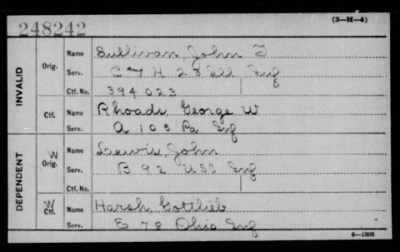 248242
(3-H-4)
INVALID
Orig.
Name Sullivan, John
Serv. Cany H 23 Ill Inf
Ctf. No. 394023
Ctf.
Name Rhoads, George W
Serv. A 105 Pa Inf
DEPENDENT
W
Orig.
Name John
Serv. B 92 Inf
Ctf. No.
W
Ctf.
Name Harsh, Gottlieb
Serv. E 78 Ohio Inf